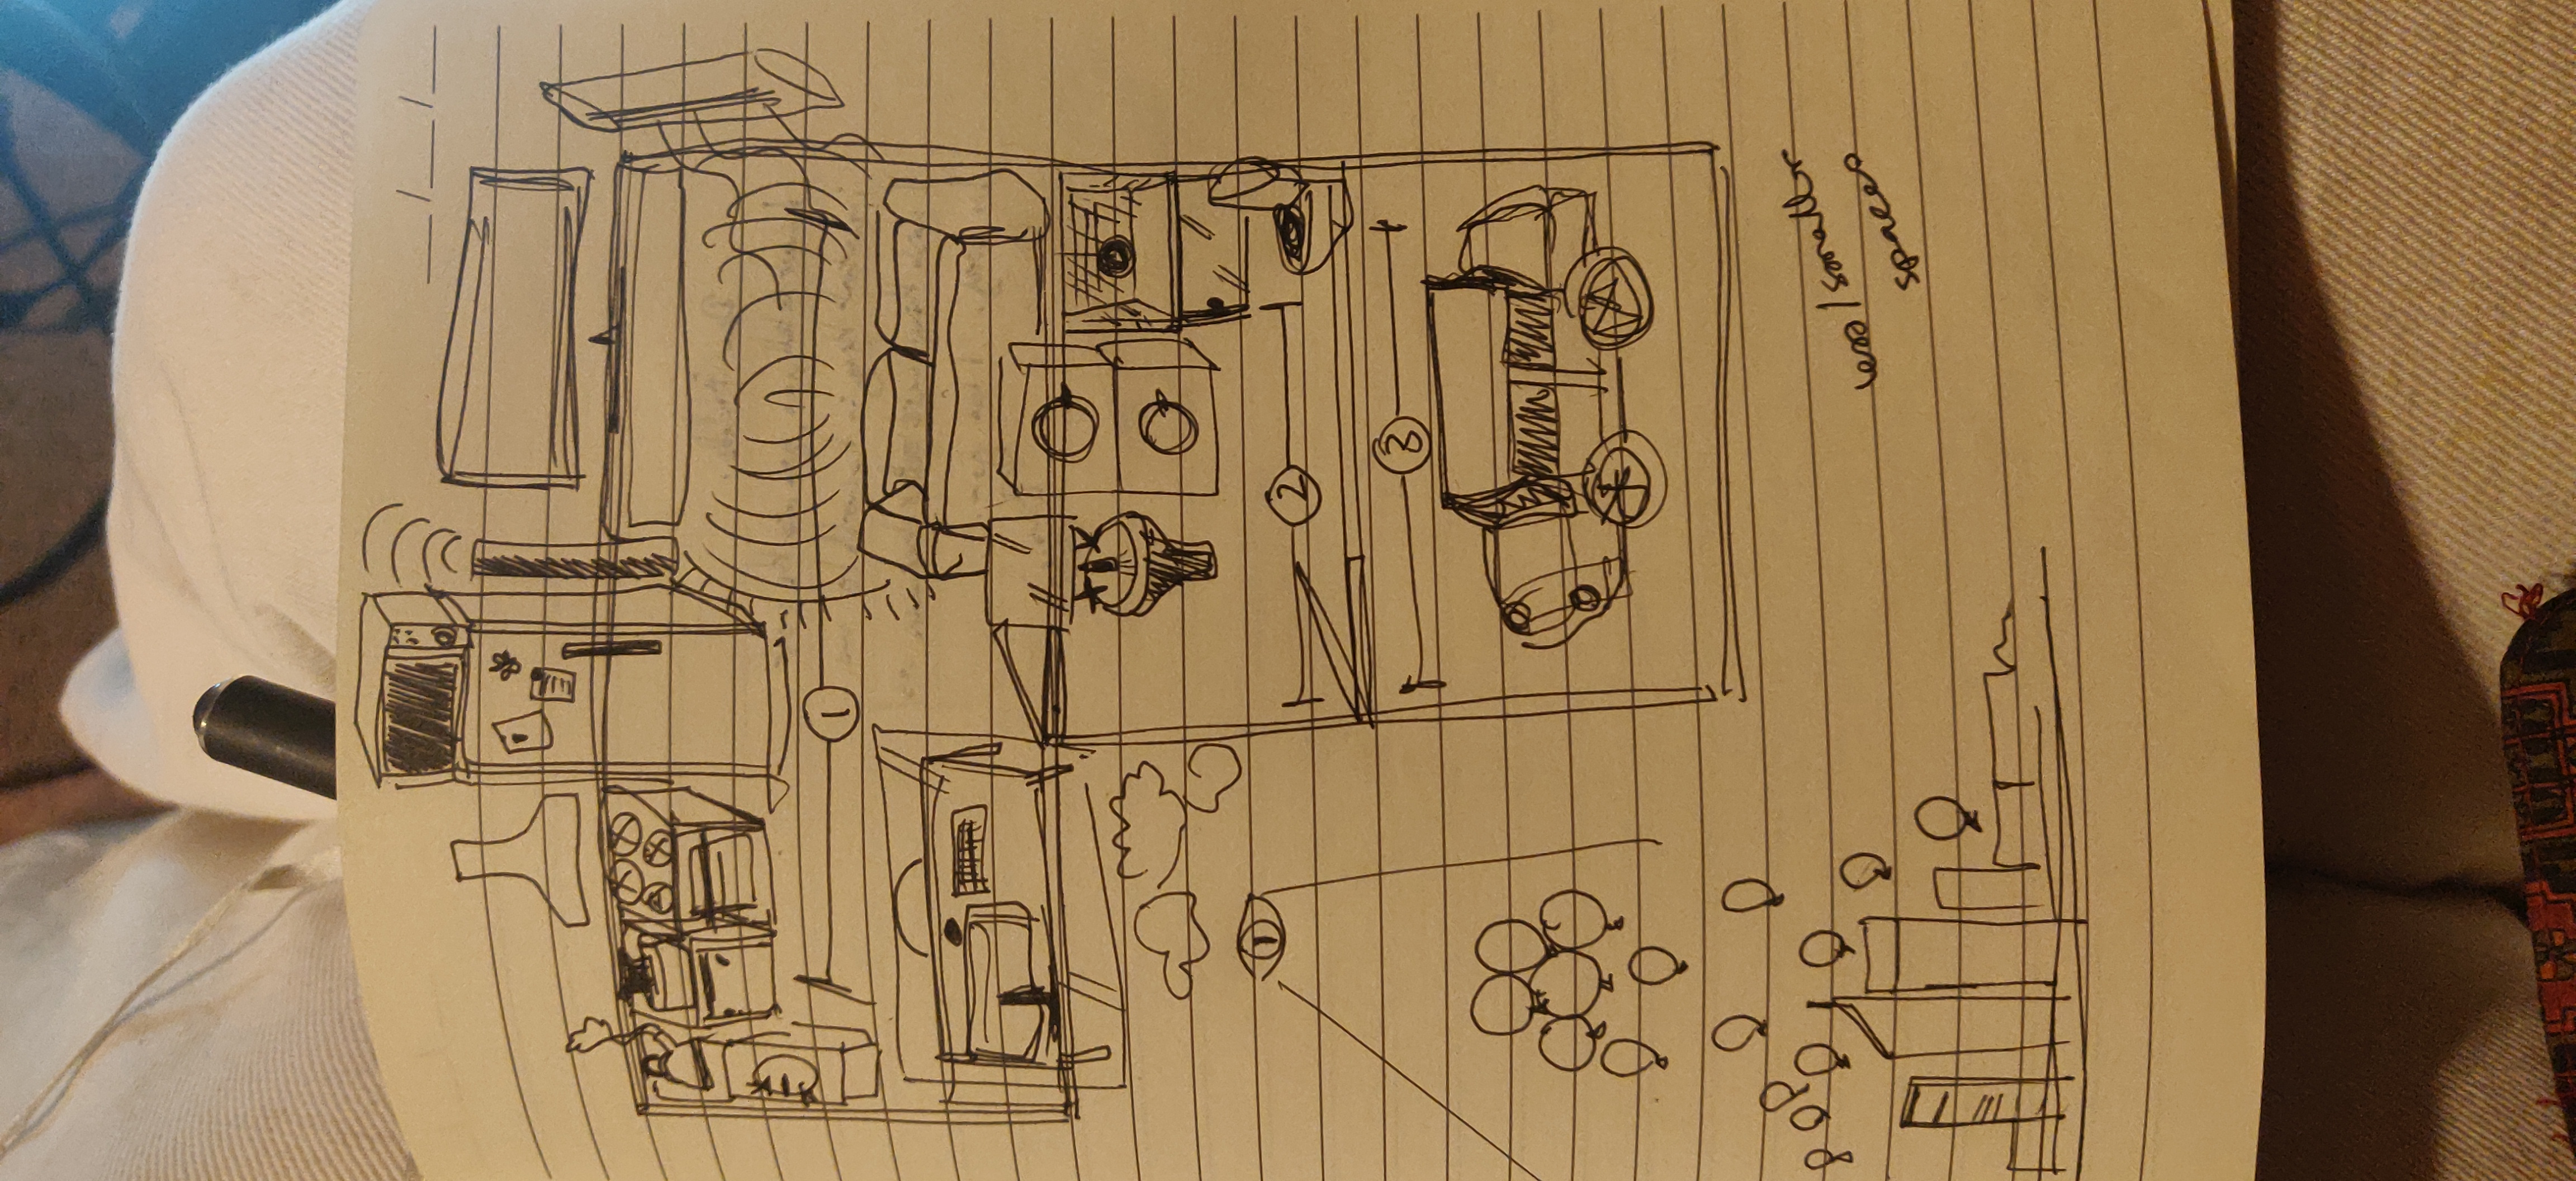 1
2
3
less/smaller
spaces